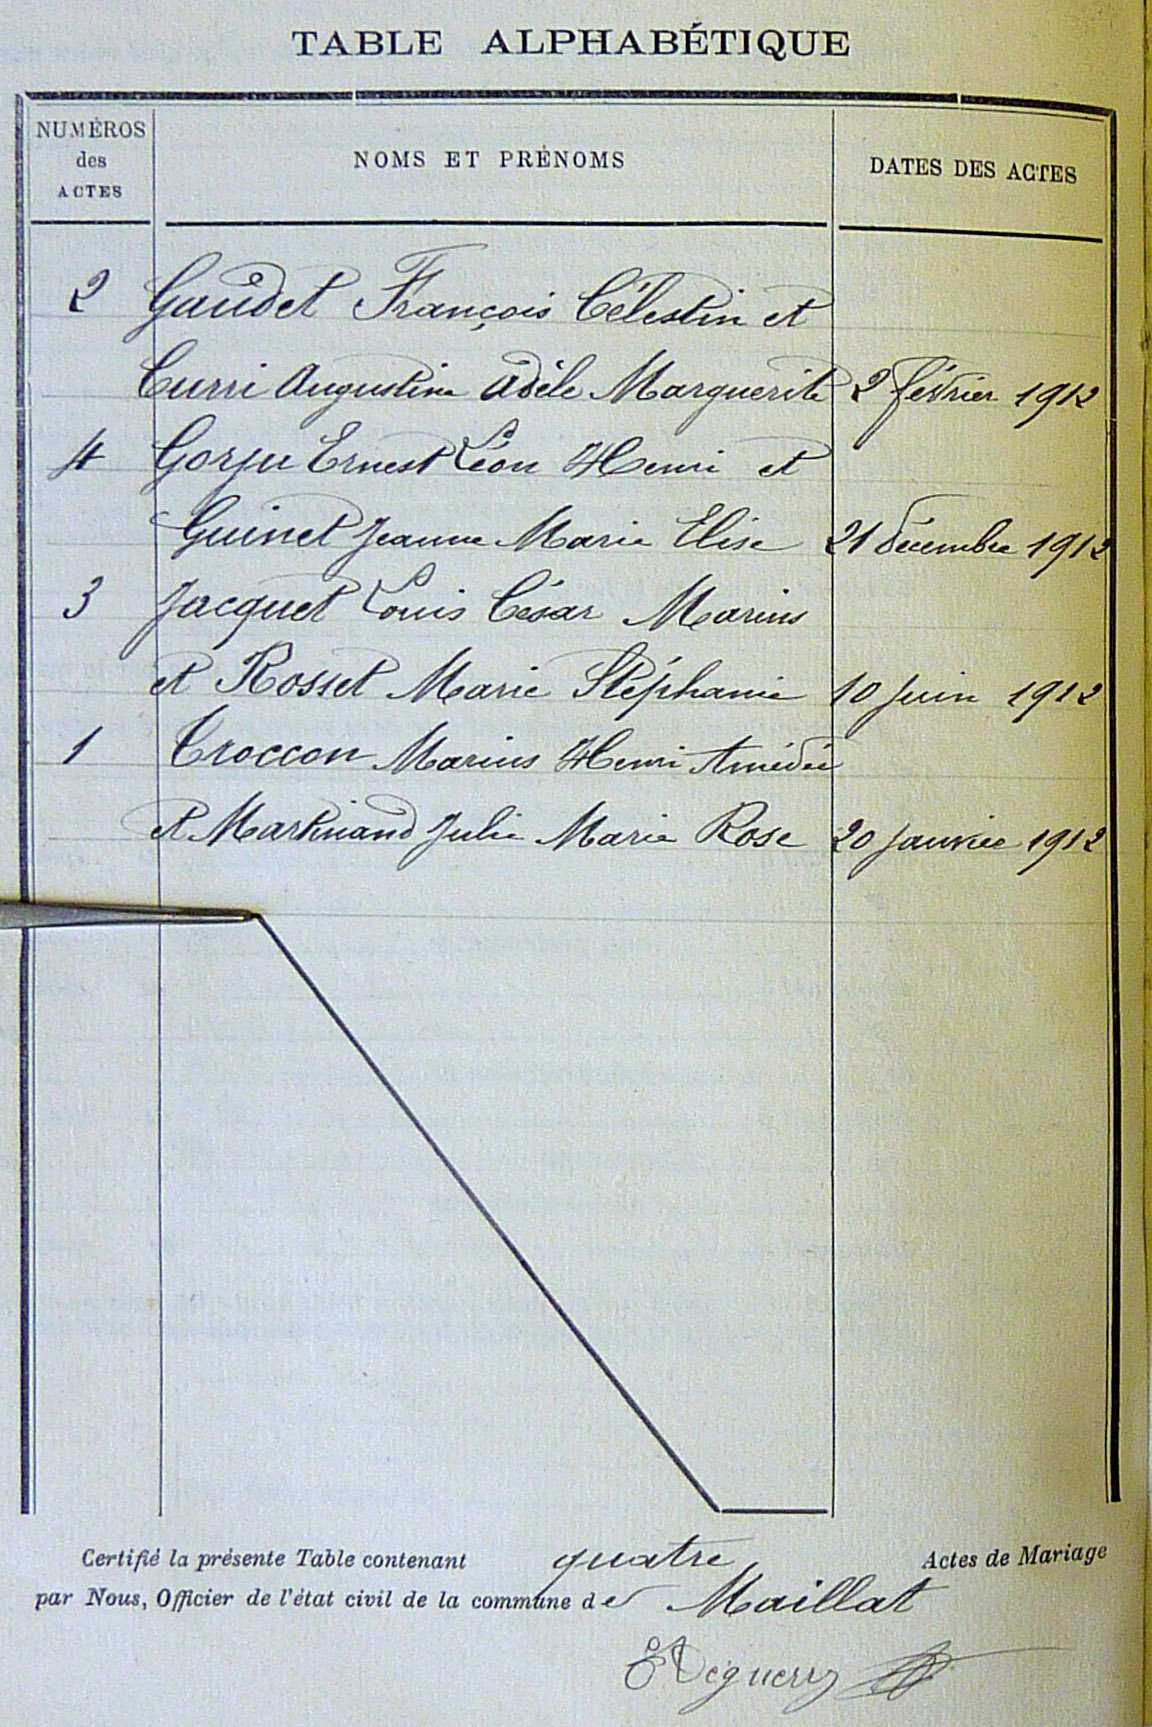 TABLE ALPHABÉTIQUE
NUMÉROS des ACTES
NOMS ET PRÉNOMS
DATES DES ACTES
2 Gaudet François Célestin et
Curri Augustine Adèle Marguerite 2 février 1912
4 Gorju Ernest Léon Henri et
Guinet Jeanne Marie Elise 21 décembre 1912
3 Jacquet Louis César Marius
et Rosset Marie Stéphanie 10 juin 1912
1 Croccon Marius Henri Amédée
et Martinand Julie Marie Rose 20 janvier 1912
Certifié la présente Table contenant quatre Actes de Mariage
par Nous, Officier de l'état civil de la commune de Maillat